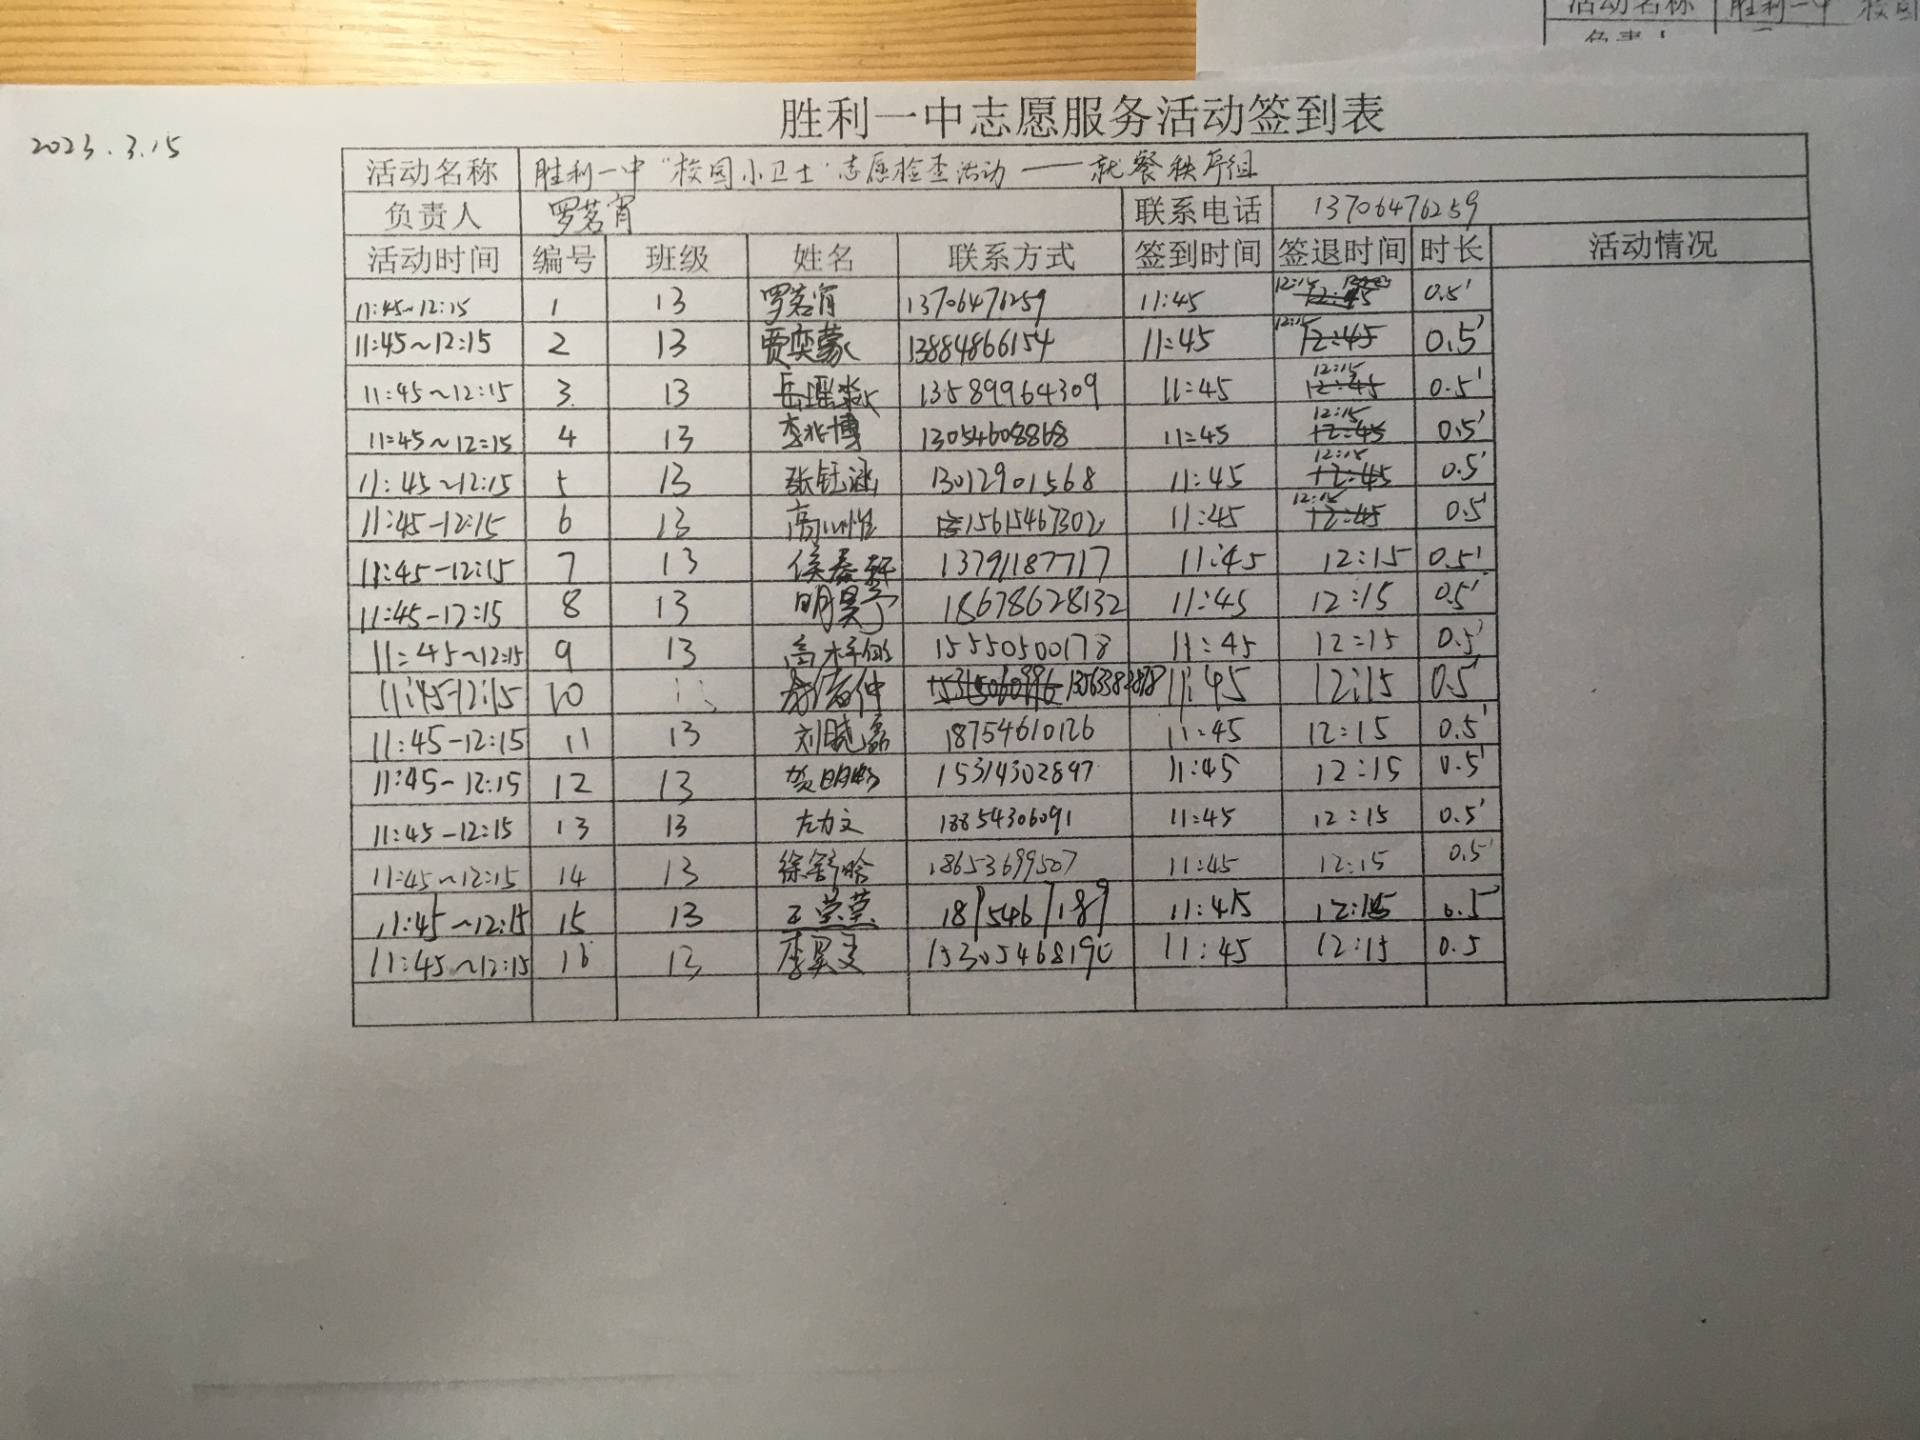 活动名称 胜利一中 校园
2023.3.15
胜利一中志愿服务活动签到表
活动名称 胜利一中“校园小卫士”志愿检查活动——就餐秩序组
负责人 罗茗宵 联系电话 13706476259
活动时间 编号 班级 姓名 联系方式 签到时间 签退时间 时长 活动情况
11:45~12:15 1 13 罗茗宵 13706476259 11:45 12:15 0.5'
11:45~12:15 2 13 贾奕蒙 13884866154 11:45 12:15 12:45 0.5'
11:45~12:15 3 13 13589964309 11:45 12:15 12:45 0.5'
11:45~12:15 4 13 李兆博 13054608868 11:45 12:15 12:45 0.5'
11:45~12:15 5 13 张钰涵 13012901568 11:45 12:15 12:45 0.5'
11:45-12:15 6 13 15615467302 11:45 12:15 12:45 0.5'
11:45-12:15 7 13 13791187717 11:45 12:15 0.5'
11:45-12:15 8 13 明昊宁 18678628132 11:45 12:15 0.5'
11:45~12:15 9 13 15550500178 11:45 12:15 0.5'
11:45-12:15 10 11:45 12:15 0.5'
11:45-12:15 11 13 刘晓磊 18754610126 11:45 12:15 0.5'
11:45-12:15 12 13 15314302897 11:45 12:15 0.5'
11:45-12:15 13 13 左力文 18854306091 11:45 12:15 0.5'
11:45~12:15 14 13 徐舒晗 18653699507 11:45 12:15 0.5'
11:45~12:15 15 13 11:45 12:15 0.5'
11:45~12:15 16 13 李昊文 15305468190 11:45 12:15 0.5